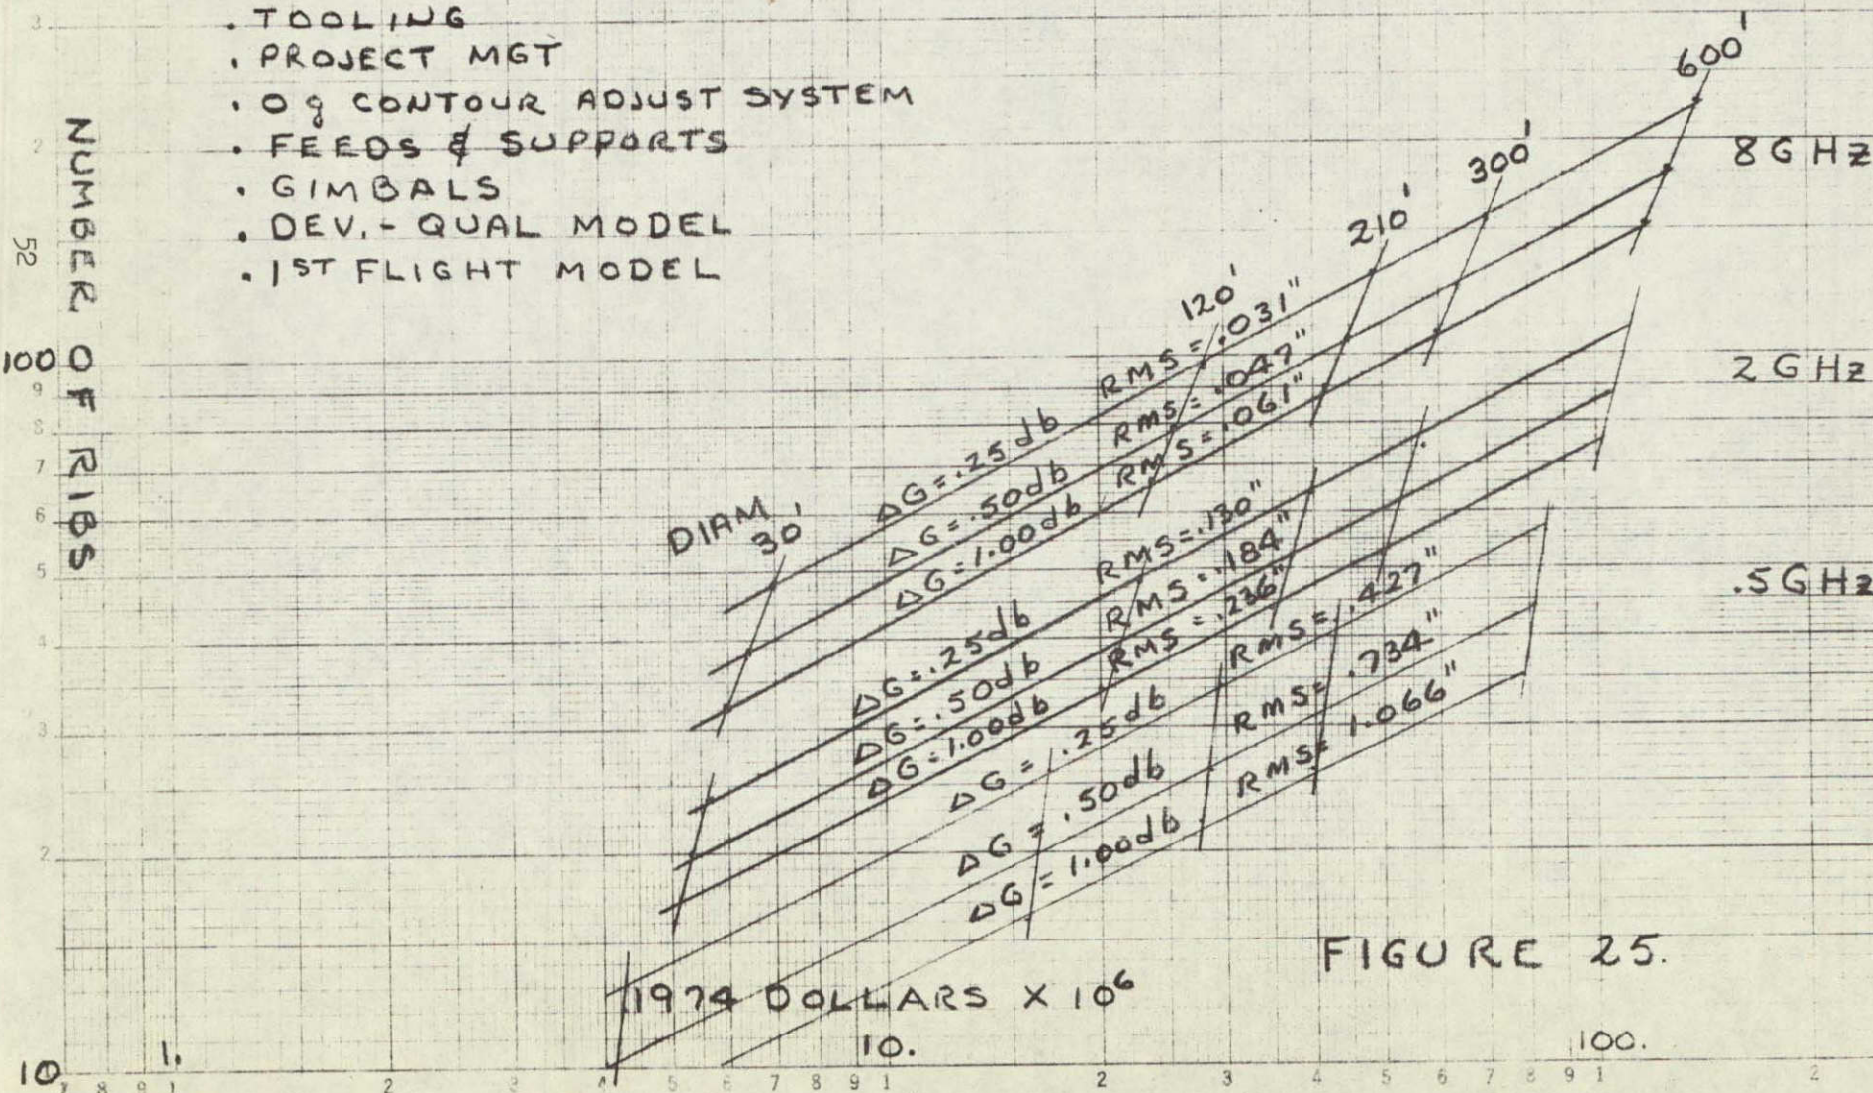 . TOOLING
. PROJECT MGT
. 0g CONTOUR ADJUST SYSTEM
. FEEDS & SUPPORTS
. GIMBALS
. DEV.- QUAL MODEL
. 1ST FLIGHT MODEL
NUMBER OF RIBS
52
3
2
100
9
8
7
6
5
4
3
2
10
600'
300'
210'
120'
DIAM 30'
8 GHz
2 GHz
.5 GHz
ΔG = .25 db RMS = .031"
ΔG = .50 db RMS = .047"
ΔG = 1.00 db RMS = .061"
ΔG = .25 db RMS = .130"
ΔG = .50 db RMS = .184"
ΔG = 1.00 db RMS = .236"
ΔG = .25 db RMS = .427"
ΔG = .50 db RMS = .734"
ΔG = 1.00 db RMS = 1.066"
FIGURE 25.
1974 DOLLARS X 10⁶
1. 10. 100.
7 8 9 1 2 3 4 5 6 7 8 9 1 2 3 4 5 6 7 8 9 1 2